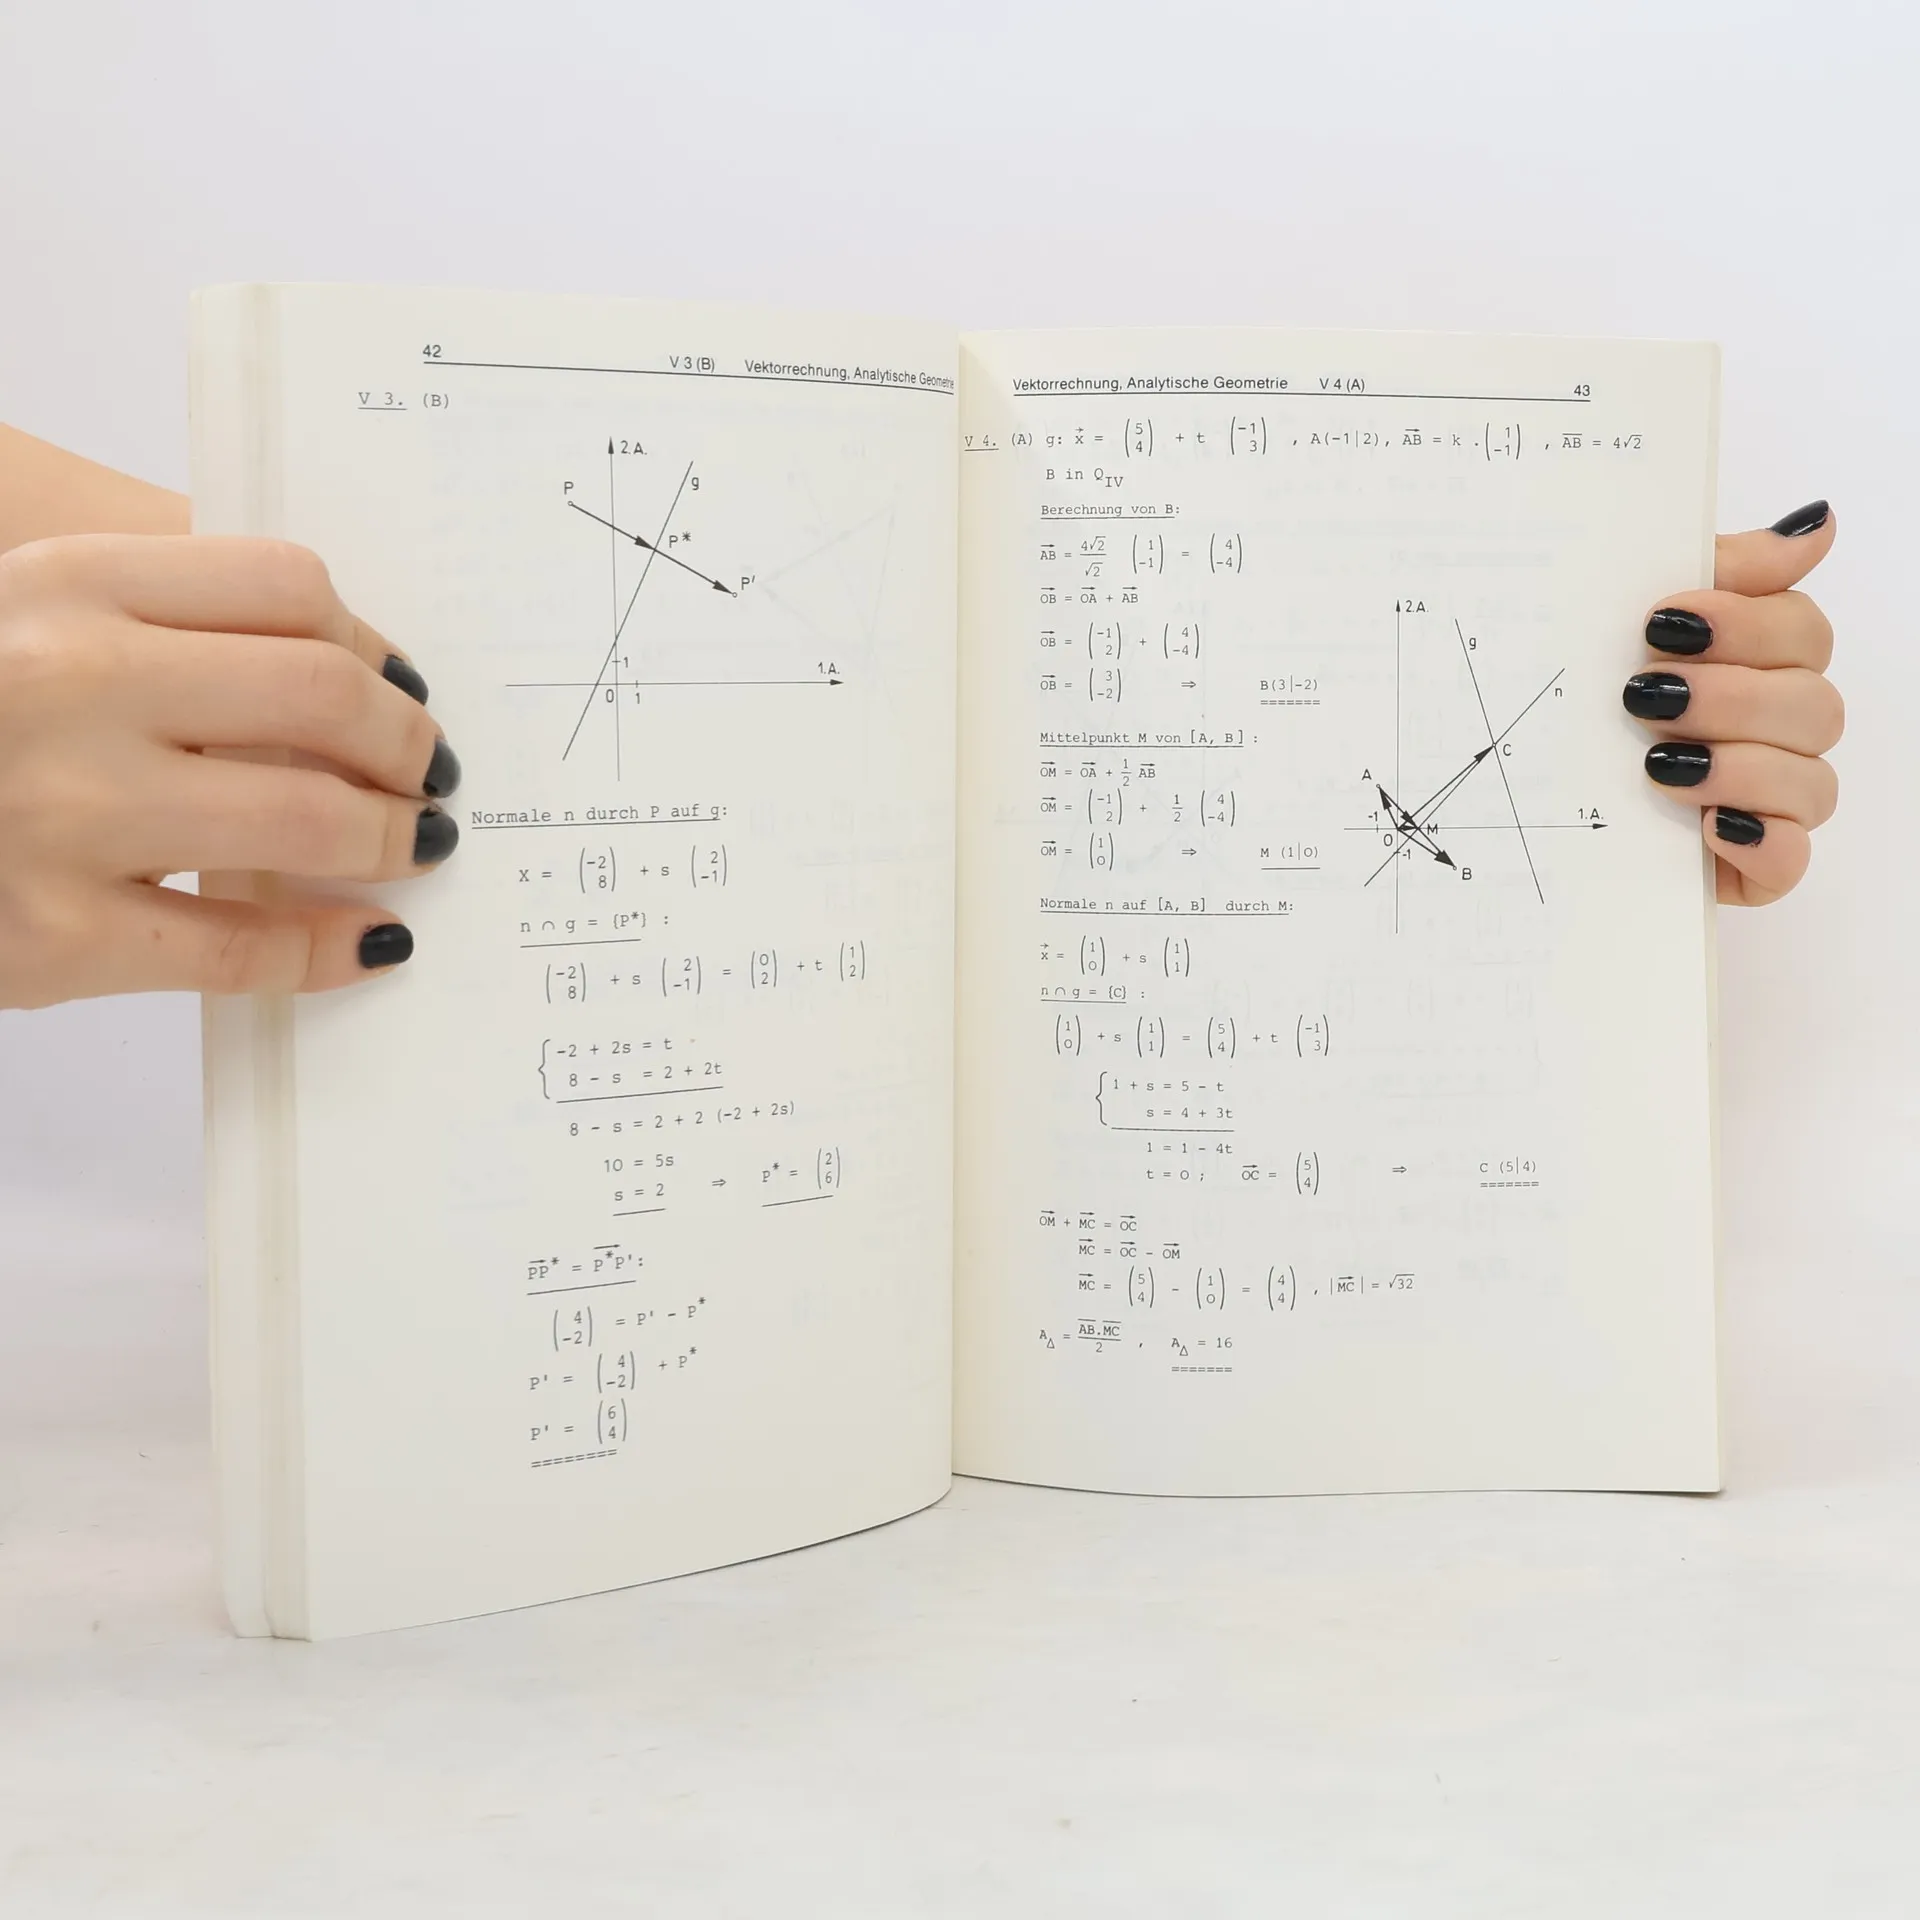 42 V 3 (B) Vektorrechnung, Analytische Geometrie
V 3. (B)
2.A.
g
P
P*
P'
1
1.A.
0 1
Normale n durch P auf g:
X = (-2 8) + s (2 -1)
n ∩ g = {P*} :
(-2 8) + s (2 -1) = (0 2) + t (1 2)
-2 + 2s = t
8 - s = 2 + 2t
8 - s = 2 + 2 (-2 + 2s)
10 = 5s
s = 2 ⇒ P* = (2 6)
PP* = P*P':
(4 -2) = P' - P*
P' = (4 -2) + P*
P' = (6 4)
========
Vektorrechnung, Analytische Geometrie V 4 (A) 43
V 4. (A) g: x = (5 4) + t (-1 3) , A(-1|2), AB = k . (1 -1) , AB = 4√2
B in Q_IV
Berechnung von B:
AB = 4√2/√2 (1 -1) = (4 -4)
OB = OA + AB
OB = (-1 2) + (4 -4)
OB = (3 -2) ⇒ B(3|-2)
=======
Mittelpunkt M von [A, B] :
OM = OA + 1/2 AB
OM = (-1 2) + 1/2 (4 -4)
OM = (1 0) ⇒ M (1|0)
2.A.
g
n
C
A
1.A.
-1
0
M
-1
B
Normale n auf [A, B] durch M:
x = (1 0) + s (1 1)
n ∩ g = {C} :
(1 0) + s (1 1) = (5 4) + t (-1 3)
1 + s = 5 - t
s = 4 + 3t
1 = 1 - 4t
t = 0 ; OC = (5 4) ⇒ C (5|4)
=======
OM + MC = OC
MC = OC - OM
MC = (5 4) - (1 0) = (4 4) , |MC| = √32
A△ = AB.MC/2 , A△ = 16
=======